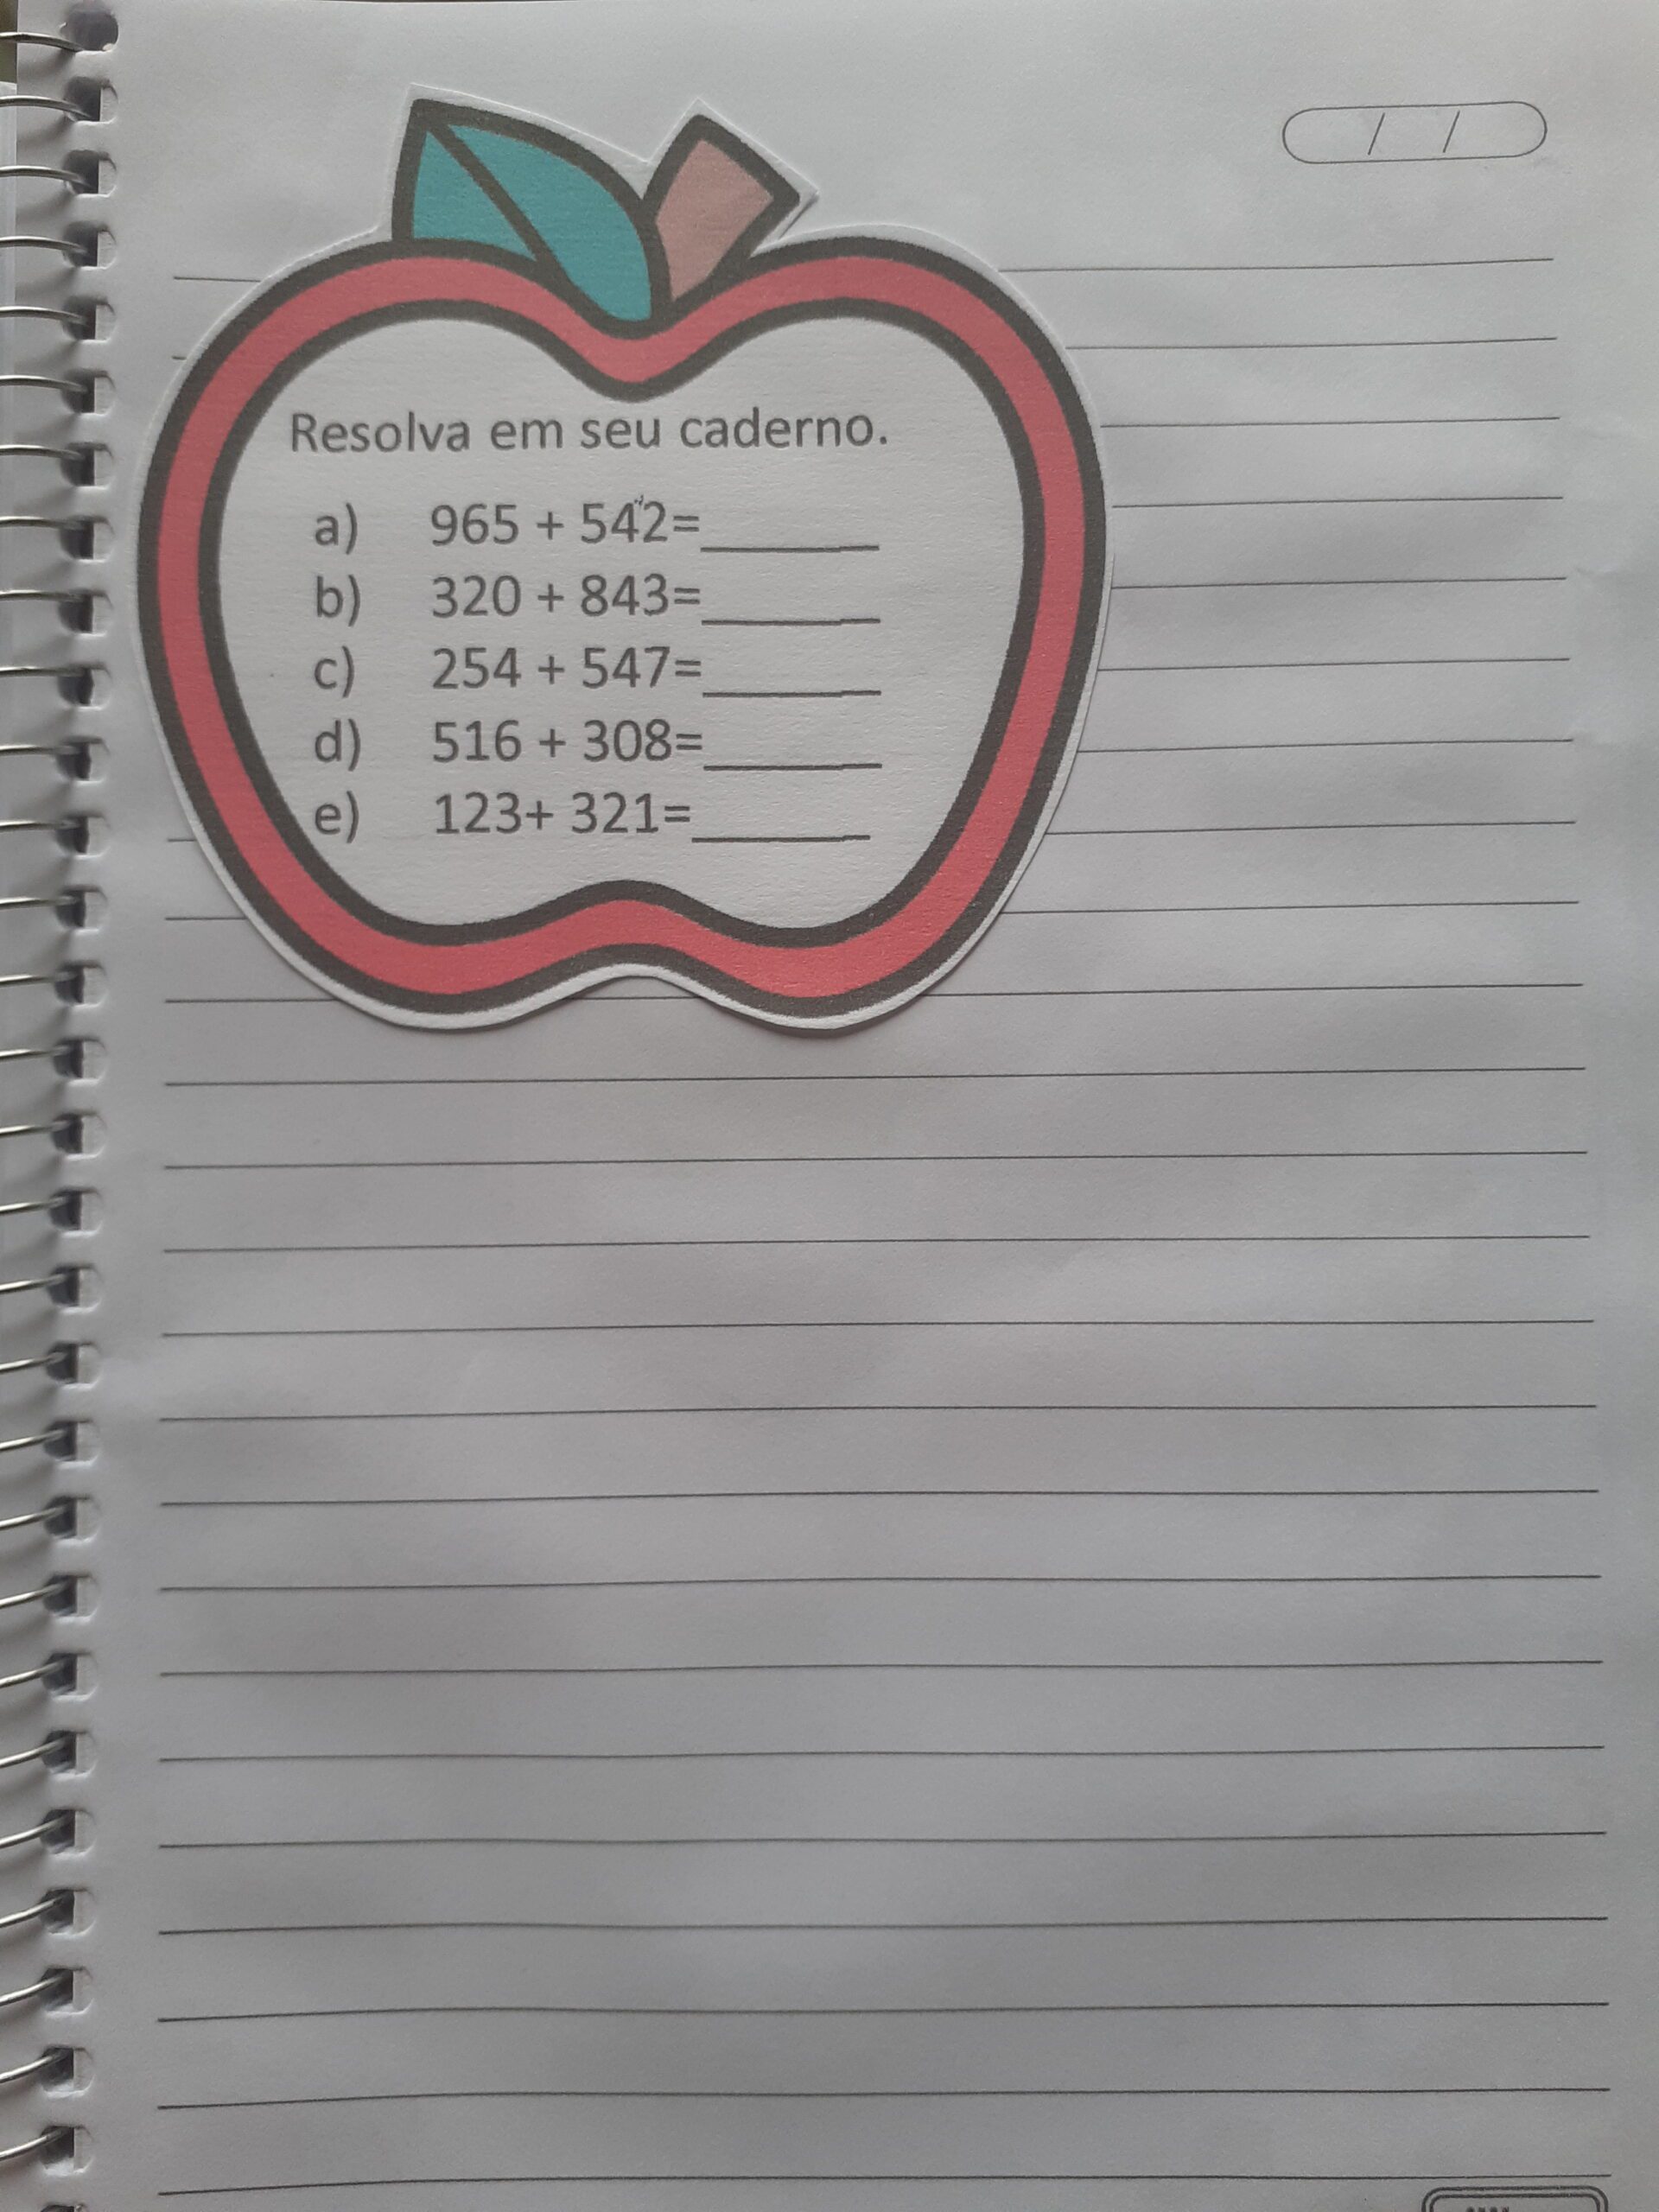 / /
Resolva em seu caderno.
a) 965 + 542=______
b) 320 + 843=______
c) 254 + 547=______
d) 516 + 308=______
e) 123+ 321=______